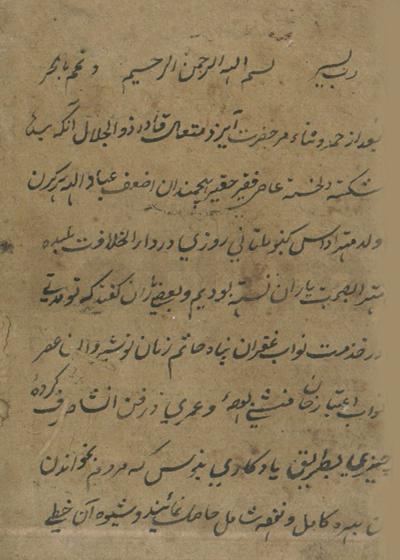 رب یسر بسم الله الرحمن الرحیم و تمم بالخیر
بعد از حمد و ثناء مر حضرت ایزد متعال قادر ذو الجلال انکه
شکسته دلخسته عاصی فقیر حقیر هیچمدان اضعف عباد الله هرکرن
ولد متهراداس کنبو ملتانی روزی در دار الخلافت بلده
متهرا بصحبت یاران نشسته بودیم و بعضی یاران گفتند که تو مدتی
در خدمت نواب غفران پناه حاتم زمان نوشیروان عصر
نواب اعتبار خان منشی بوده و عمری در فن انشا صرف کرده
چیزی بطریق یادکاری بنویس که مردم بخواندن
بهره کامل و نفع شامل حاصل نمایند و شیوه آن خیلی